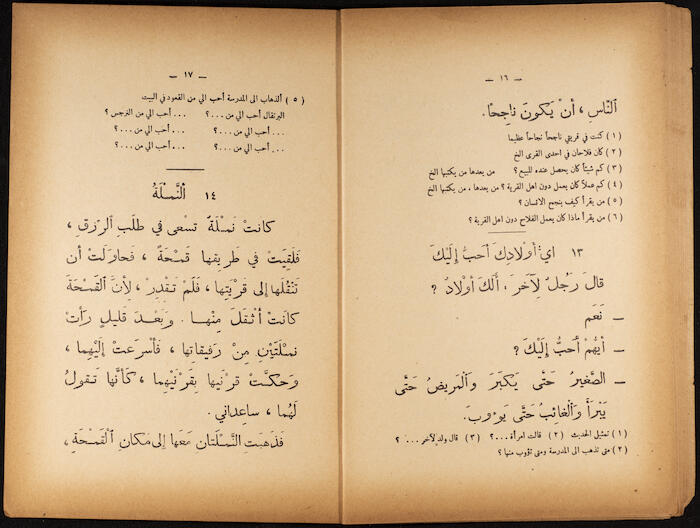 — ١٦ —
اَلنَّاسِ ، أَنْ يَكُونَ نَاجِحًا.
(١) كنت في قريتي ناجحاً نجاحاً عظيما
(٢) كان فلاحان في احدى القرى الخ
(٣) كم شيئاً كان يحصل عنده للبيع ؟ من بعدها من يكتبها الخ
(٤) كم عملاً كان يعمل دون اهل القرية ؟ من بعدها ، من يكتبها الخ
(٥) من يقرأ كيف ينجح الانسان ؟
(٦) من يقرأ ماذا كان يعمل الفلاح دون اهل القرية ؟
١٣ اي أَوْلادِكَ أَحَبُّ إِلَيْكَ
قالَ رَجُلٌ لِآخَرَ ، أَلَكَ أَوْلادٌ ؟
— نَعَم
— أَيُّهُمْ أَحَبُّ إِلَيْكَ ؟
— الصَّغيرُ حَتَّى يَكْبَرَ وَالْمَريضُ حَتَّى
يَبْرَأَ وَالْغائِبُ حَتَّى يَؤُوبَ.
(١) تمثيل الحديث (٢) قالت امرأة ...؟ (٣) قال ولد لآخر ... ؟
(٢) متى تذهب الى المدرسة ومتى تؤوب منها ؟
— ١٧ —
(٥) ألذهاب الى المدرسة أحب الي من القعود في البيت
البرتقال أحب الي من ...؟ ... أحب الي من النرجس ؟
... أحب الي من ...؟ ... أحب الي من ...؟
... أحب الي من ...؟ ... أحب الي من ...؟
١٤ اَلنَّمْلَةُ
كانَتْ نَمْلَةٌ تَسْعى في طَلَبِ الرِّزْقِ ،
فَلَقِيَتْ في طَريقِها قَمْحَةً ، فَحاوَلَتْ أَن
تَنْقُلَها إِلى قَرْيَتِها ، فَلَمْ تَقْدِرْ ، لِأَنَّ الْقَمْحَةَ
كانَتْ أَثْقَلَ مِنْها . وَبَعْدَ قَليلٍ رَأَتْ
نَمْلَتَيْنِ مِنْ رَفيقاتِها ، فَأَسْرَعَتْ إِلَيْهِما ،
وَحَكَّتْ قَرْنَيْها بِقَرْنَيْهِما ، كَأَنَّها تَقولُ
لَهُما ، ساعِداني .
فَذَهَبَتِ النَّمْلَتانِ مَعَها إِلى مَكانِ الْقَمْحَةِ ،